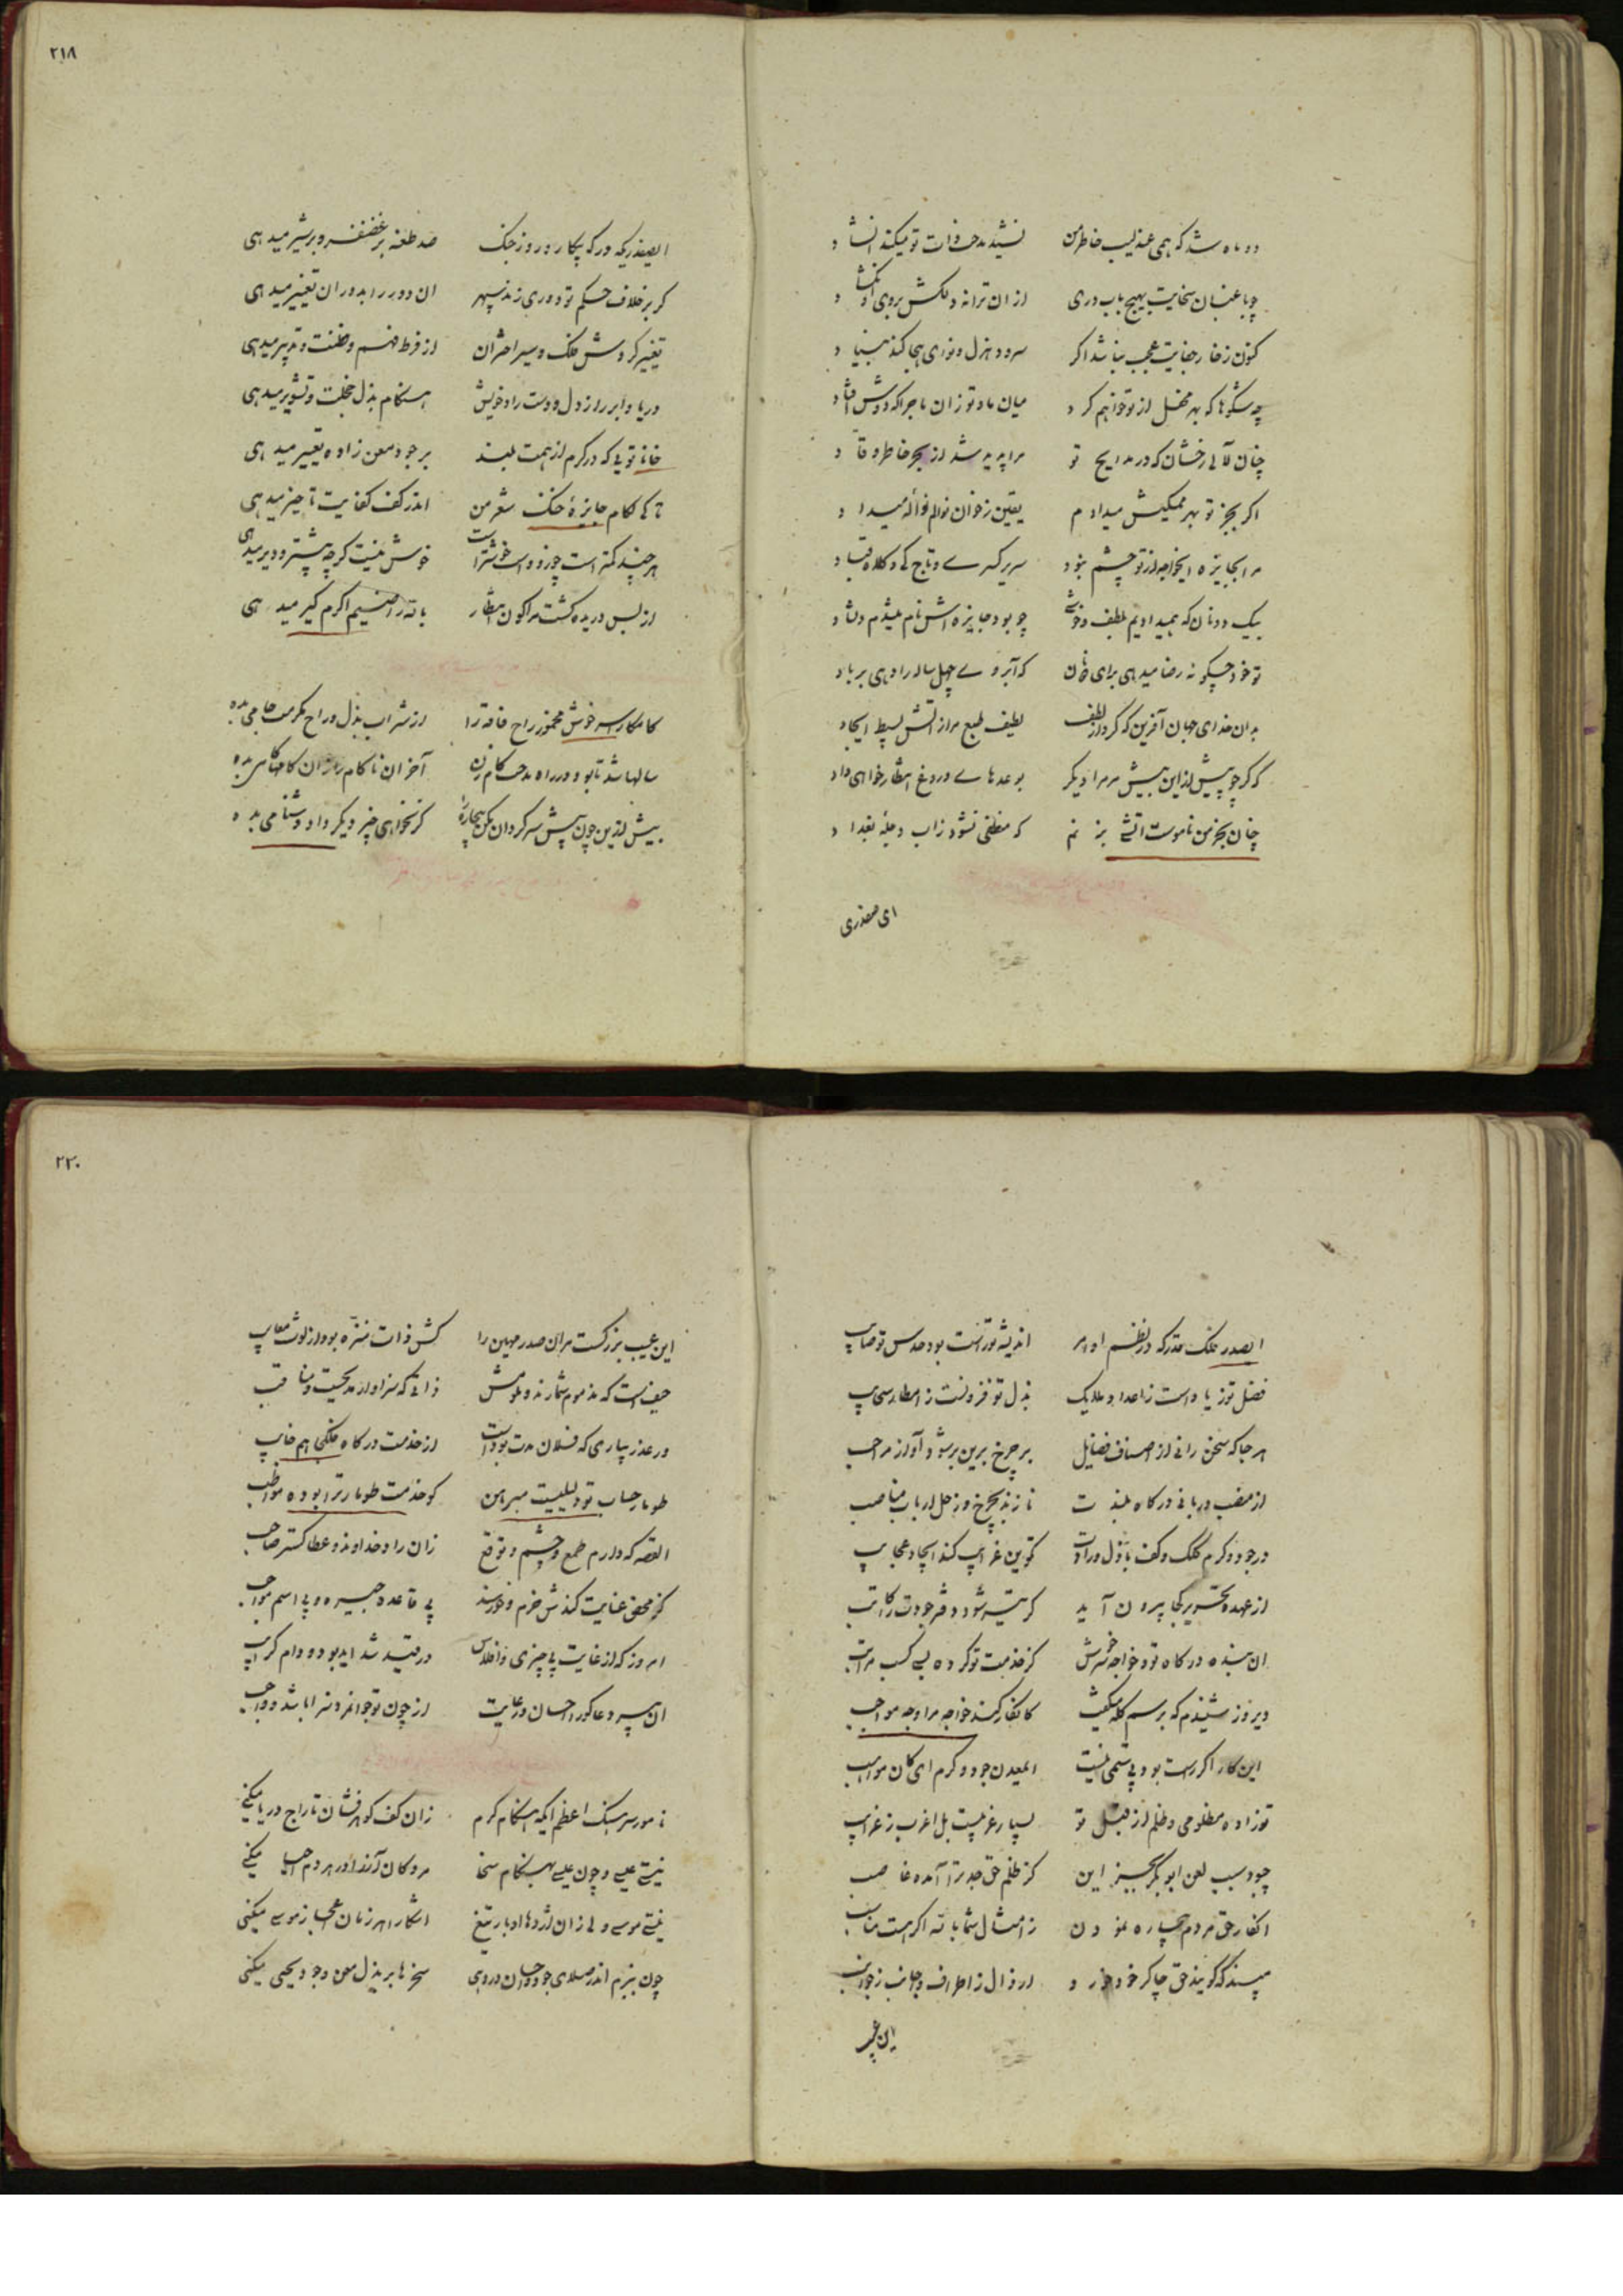 ۲۱۸
دو ماه شد که همی عندلیب خاطر من نشید مدحت ذات تو میکند انشاد
چو باغبان سخایت بهیچ باب دری از ان ترانه دلکش بروی او نگشاد
کنون ز خار جفایت عجب نباشد اگر سرود هزل و نوای هجا کند بنیاد
چه شکوها که بهر محفل از تو خواهم کرد میان ما و تو زان ماجرا که دوش افتاد
چنان لآلی رخشان که در مدایح تو مرا پدید شد از بحر خاطر وقاد
اگر بجز تو بهر ممسکیش میدادم یقین ز خوان نوالم نواله میداد
مرا بجایزه ایخواجه از تو چشم نبود سریر کسری و تاج کی و کلاه قباد
بیک دو نان که همیدادیم بلطف و خوشی چو بود جایزه اش نام میشدم دلشاد
تو خود چگونه رضا میدهی برای دو نان که آبروی چهل ساله را دهی برباد
بدان خدای جهان آفرین که کرد از لطف لطیف طبع مرا از آتش بسیط ایجاد
که گر چو پیش ازین بیش مر مرا دیگر بوعدهای دروغ انتظار خواهی داد
چنان بخرمن ناموست آتشی بزنم که منطفی نشود ز اب دجله بغداد
ای صفدری
ایصفدریکه در گه پیکار و روز جنگ صد طعنه بر غضنفر و بر شیر میدهی
گر بر خلاف حکم تو دوری زند سپهر ان دور را بدوران تغییر میدهی
تغییر گردش فلک و سیر اختران از فرط فهم و فطنت و تدبیر میدهی
دریا و ابر را ز دل و دست راد خویش هنگام بذل خجلت و تشویر میدهی
خانا تویی که در کرم از همت بلند بر جود معن زاده تغییر میدهی
تا کی بکام جایزه خنک شعر من اندر کف کفایت تاخیر میدهی
هر چند گفته است چو زود است خوشتر است خوش نیست گرچه بیشتر و دیر میدهی
از بس دریده گشت مرا کون انتظار بالله راضیم اگرم کیر میدهی
کامکارا سر خوش مخمور راح فاقه را از شراب بذل و راح مکرمت جامی بده
سالها شد تا بود در راه مدحت کام زن آخر ان ناکام را زان کامها کامی بده
بیش ازین چون پیش سرگردان مکن بیچاره را گر نخواهی چیز دیگر داد دشنامی بده
۲۲۰
ایصدر فلک قدر که در نظم امور اندیشه تو راست بود حدس تو صایب
فضل تو زیاد است ز اعداد ملایک بذل تو فزونست ز امطار سحایب
هر جا که سخن رانی از اصناف فضایل بر چرخ برین بر شود آواز مراحب
از منصب دربانی درگاه بلندت نازند بچرخ و زحل ارباب مناصب
در جود و کرم کلک و کف باذل و رادت تکوین غرایب کند ایجاد عجایب
از عهده تحریر کجا بیرون آید گر تیر شود دفتر جودت را کاتب
ان بنده درگاه تو و خواجه خرش کز خدمت تو کرده بسی کسب مراتب
دیروز شنیدم که برسم گله میگفت کانکار کند خواجه مرا وجه مواجب
این کار اگر راست بود بی ستمی نیست ایمعدن جود و کرم ای کان مواهب
تو زاده مظلومی و ظلم از قبل تو بسیار غریبست بل اغرب ز غرایب
چبود سبب لعن ابوبکر بجز این کز ظلم حق جد ترا آمده غاصب
انکار حق مردم بیچاره نمودن ز امثال شما بالله اگر هست مناسب
مپسند که گویند حق چاکر خود خورد ارذال ز اطراف و اجانب ز جوانب
این عیب
این عیب بزرگست مران صدر مهین را کش ذات منزه بود از لوث معایب
حیف است که مذموم شمارند و ملومش ذاتی که سزاوار مدیحست و مناقب
در عذر بیاری که فلان مدت بوده است از خدمت درگاه فلکی هم خایب
طومار حساب تو دلیلیست مبرهن کو خدمت طومار ترا بوده مواظب
القصه که دارم طمع و چشم و توقع زان راد خداوند و عطا گستر صاحب
کز محض عنایت کندش خرم و خورسند بی قاعده جیره و بی اسم مواجب
امروز که از غایت بی چیزی و افلاس در قید شداید بود و دام کرایب
ان پیر دعا گو را احسان و رعایت از چون تو جوانمرد سزا باشد و واجب
نامور سرهنگ اعظم ایکه هنگام کرم زان کف گوهر فشان تاراج دریا میکنی
نیستی عیسی و چون عیسی بهنگام سخا مردگان آز را در هر دم احیا میکنی
نیستی موسی ولی زان اژدها ادبار تیغ اشکار هر زمان اعجاز موسی میکنی
چون ببزم اندر صلای جود و احسان در دهی سخرها بر بذل معن و جود یحیی میکنی